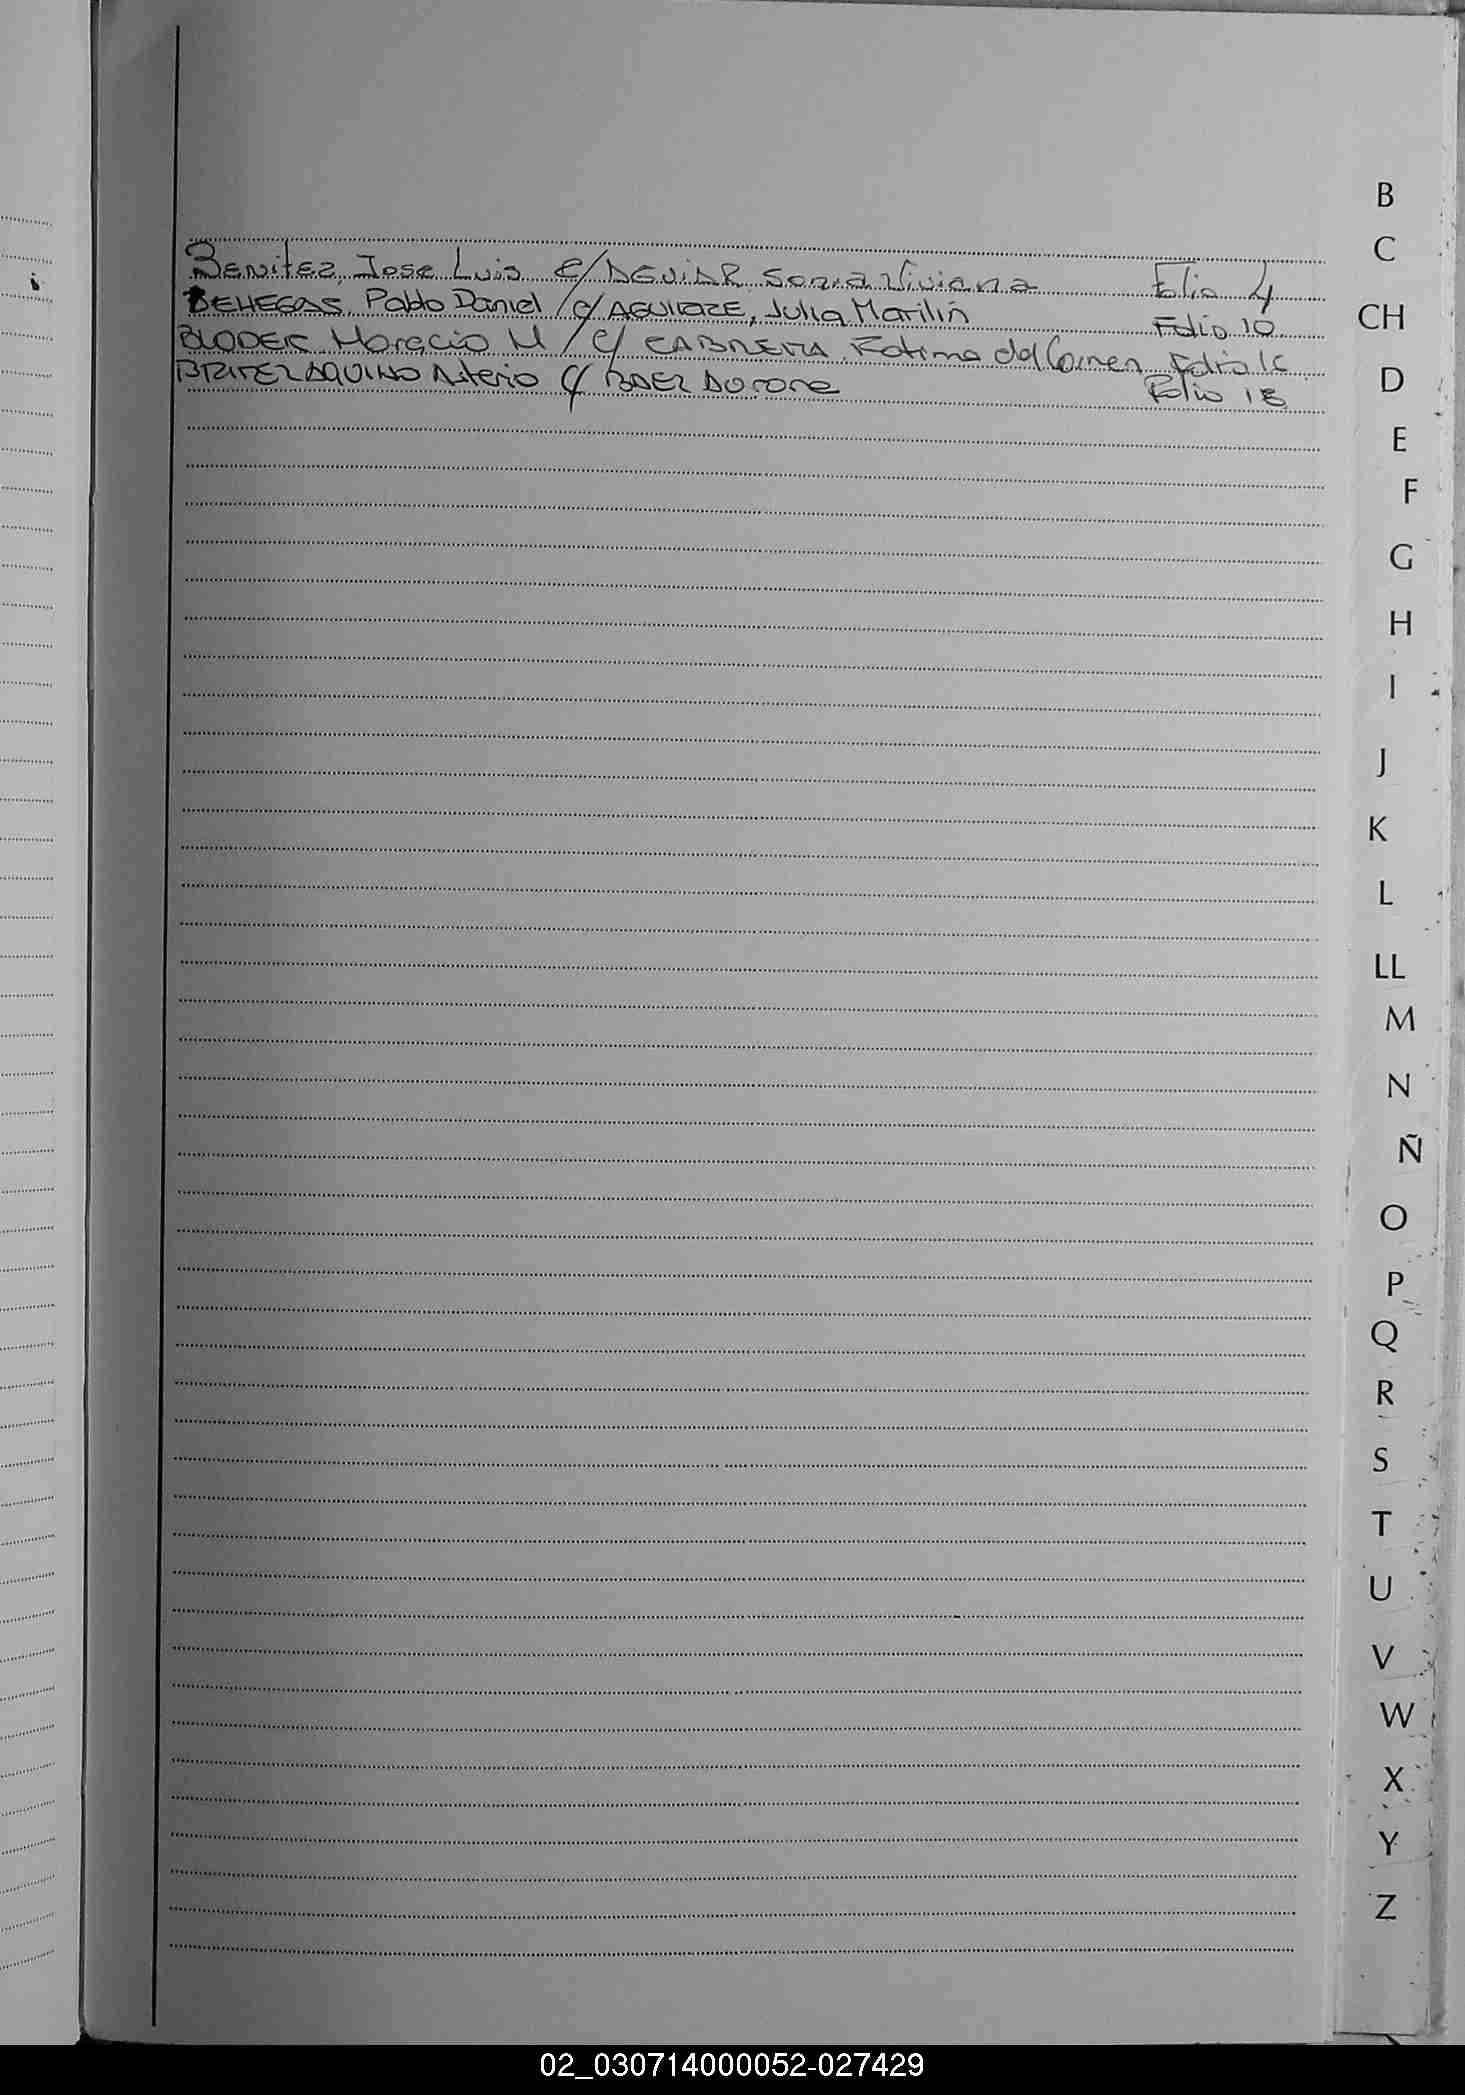 Benitez, Jose Luis c/ AGUIAR, Sonia Viviana Folio 4
BEHEGAS, Pablo Daniel / c/ AGUILAZE, Julia Marilin Folio 10
BLODEK Horacio M / c/ CABRERA, Fatima del Carmen Folio 16
BRITEZ AQUINO Asterio c/ BAEZ Folio 18
B
C
CH
D
E
F
G
H
I
J
K
L
LL
M
N
Ñ
O
P
Q
R
S
T
U
V
W
X
Y
Z
02_030714000052-027429